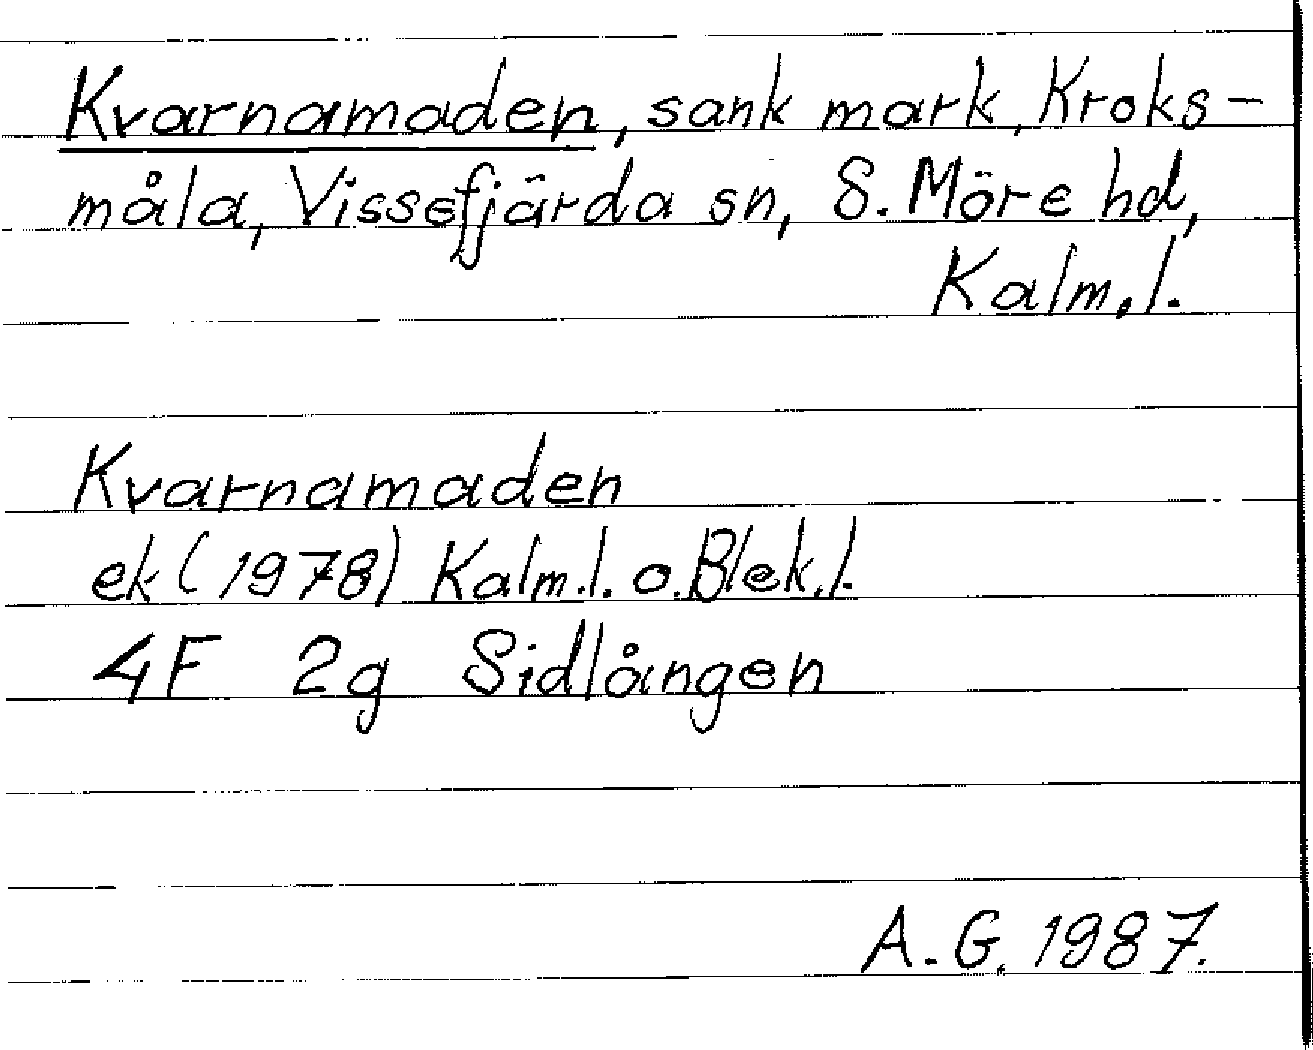 Kvarnamaden, sank mark, Kroks-
måla, Vissefjärda sn, S. Möre hd,
Kalm.l.
Kvarnamaden
ek (1978) Kalm.l. o. Blek.l.
4F 2g Sidlången
A.G. 1987.